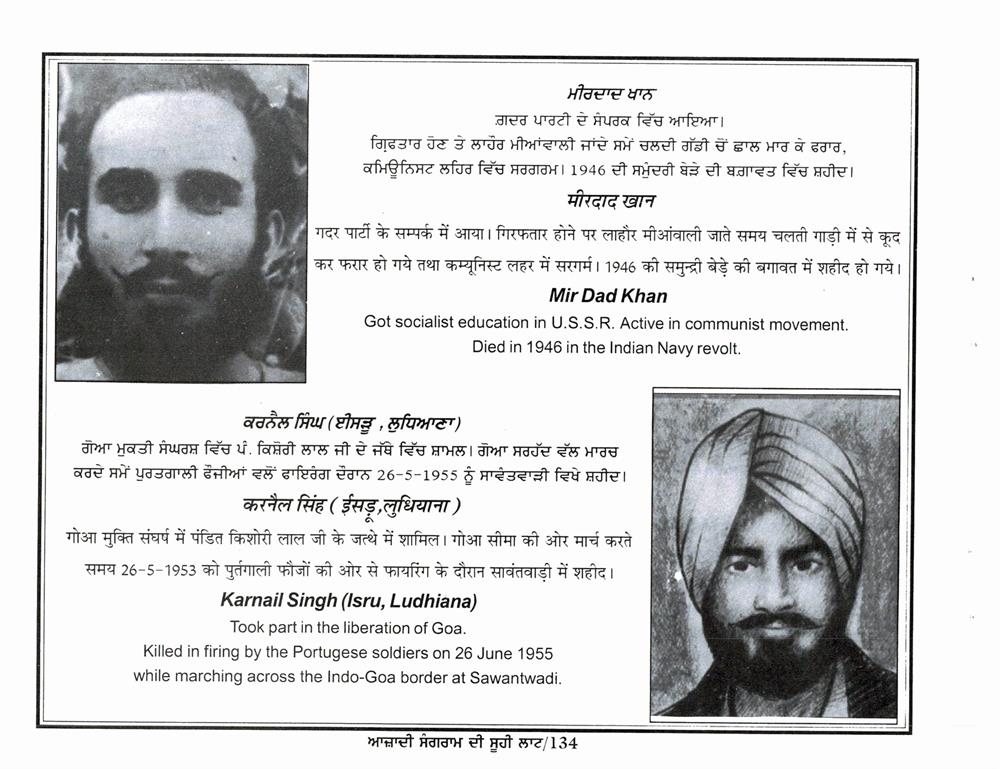 ਮੀਰਦਾਦ ਖਾਨ
ਗ਼ਦਰ ਪਾਰਟੀ ਦੇ ਸੰਪਰਕ ਵਿੱਚ ਆਇਆ।
ਗ੍ਰਿਫਤਾਰ ਹੋਣ ਤੇ ਲਾਹੌਰ ਮੀਆਂਵਾਲੀ ਜਾਂਦੇ ਸਮੇਂ ਚਲਦੀ ਗੱਡੀ ਚੋਂ ਛਾਲ ਮਾਰ ਕੇ ਫਰਾਰ,
ਕਮਿਊਨਿਸਟ ਲਹਿਰ ਵਿੱਚ ਸਰਗਰਮ। 1946 ਦੀ ਸਮੁੰਦਰੀ ਬੇੜੇ ਦੀ ਬਗ਼ਾਵਤ ਵਿੱਚ ਸ਼ਹੀਦ।
मीरदाद खान
गदर पार्टी के सम्पर्क में आया। गिरफतार होने पर लाहौर मीआंवाली जाते समय चलती गाड़ी में से कूद
कर फरार हो गये तथा कम्यूनिस्ट लहर में सरगर्म। 1946 की समुन्द्री बेड़े की बगावत में शहीद हो गये।
Mir Dad Khan
Got socialist education in U.S.S.R. Active in communist movement.
Died in 1946 in the Indian Navy revolt.
ਕਰਨੈਲ ਸਿੰਘ (ਈਸੜੂ , ਲੁਧਿਆਣਾ)
ਗੋਆ ਮੁਕਤੀ ਸੰਘਰਸ਼ ਵਿੱਚ ਪੰ. ਕਿਸ਼ੋਰੀ ਲਾਲ ਜੀ ਦੇ ਜੱਥੇ ਵਿੱਚ ਸ਼ਾਮਲ। ਗੋਆ ਸਰਹੱਦ ਵੱਲ ਮਾਰਚ
ਕਰਦੇ ਸਮੇਂ ਪੁਰਤਗਾਲੀ ਫੌਜੀਆਂ ਵਲੋਂ ਫਾਇਰੰਗ ਦੌਰਾਨ 26-5-1955 ਨੂੰ ਸਾਵੰਤਵਾੜੀ ਵਿਖੇ ਸ਼ਹੀਦ।
करनैल सिंह ( ईसड़ू,लुधियाना )
गोआ मुक्ति संघर्ष में पंडित किशोरी लाल जी के जत्थे में शामिल। गोआ सीमा की ओर मार्च करते
समय 26-5-1953 को पुर्तगाली फौजों की ओर से फायरिंग के दौरान सावंतवाड़ी में शहीद।
Karnail Singh (Isru, Ludhiana)
Took part in the liberation of Goa.
Killed in firing by the Portugese soldiers on 26 June 1955
while marching across the Indo-Goa border at Sawantwadi.
ਆਜ਼ਾਦੀ ਸੰਗਰਾਮ ਦੀ ਸੂਹੀ ਲਾਟ/134